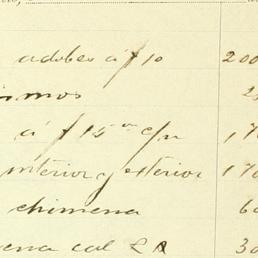 adobes á $10 200
ismos 2
á $15 c/u 1,7
interior y exterior 170
chimena 60
ena cal 30